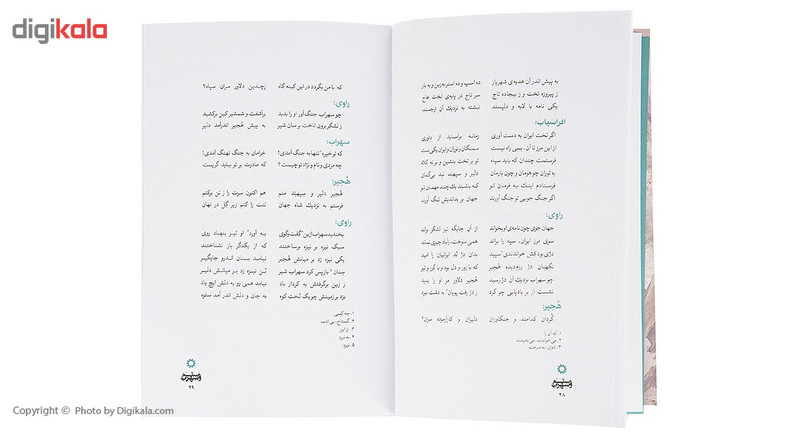 digikala
به پیش اندر آن هدیه‌ی شهریار ده اسپ و ده استر به زین و به بار
ز پیروزه تخت و ز بیجاده تاج سر تاج در پایه‌ی تخت عاج
یکی نامه با لابه و دلپسند نبشته به نزدیک آن ارجمند
افراسیاب:
اگر تخت ایران به دست آوری زمانه برآساید از داوری
از این مرز تا آن، بسی راه نیست سمنگان و توران و ایران یکی‌ست
فرستمت چندان که باید سپاه تو بر تخت بنشین و بر نه کلاه
به توران چو هومان و چون بارمان دلیر و سپهبد نبد بی‌گمان
فرستادم اینک به فرمان تو که باشند یک چند مهمان تو
اگر جنگ جویی تو جنگ آورند جهان بر بداندیش تنگ آورند
راوی:
جهان جوی چون نامه‌ی او بخواند از آن جایگه تیز لشکر براند
سوی مرز ایران، سپه را براند همی سوخت، آباد چیزی نماند
دژی بود کش خواندندی سپید بدان دژ بد ایرانیان را امید
نگهبان دژ رزم‌دیده هجیر که با زور و دل بود و با گرز و تیر
چو سهراب نزدیک آن دژ رسید هجیر دلاور مر او را بدید
نشست از بر بادپایی چو گرد ز دژ رفت پویان به دشت نبرد
هُجیر:
گُردان کدامند و جنگاوران دلیران و کارآزموده سران؟
۱. که آن را
۲. می‌خواندند، می‌نامیدند
۳. دوان، به سرعت
۲۸
که با من بگردد در این کینه گاه ز چندین دلاور سرای سپاه؟
راوی:
چو سهراب جنگ‌آور او را بدید برآشفت و شمشیر کین برکشید
ز لشکر برون تاخت برسان شیر به پیش هُجیر اندرآمد دلیر
سهراب:
که تو خیره تنها به جنگ آمدی؟ خرامان به جنگ نهنگ آمدی؟
چه مردی و نام و نژاد تو چیست؟ که مادرت بر تو بباید گریست
هُجیر:
هُجیر دلیر و سپهبد منم هم اکنون سرت را ز تن برکنم
فرستم به نزدیک شاه جهان تنت را کنم زیر گل در نهان
راوی:
بخندید سهراب ازین گفت‌وگوی به آورد او تیز بنهاد روی
سبک نیزه بر نیزه برساختند که از یکدگر باز نشناختند
یکی نیزه زد بر میانش هُجیر نیامد سنان اندرو جایگیر
سنان بازپس کرد سهراب شیر بُن نیزه زد بر میانش دلیر
ز زین برگرفتش به کردار باد نیامد همی زو به دلش ایچ یاد
بزد بر زمینش چو یک لخت کوه به جان و دلش اندر آمد ستوه
۱. چه کسی
۲. گستاخ، بی ادب
۳. از این
۴. به نبرد
۵. نیزه
۲۹
Copyright © Photo by Digikala.com